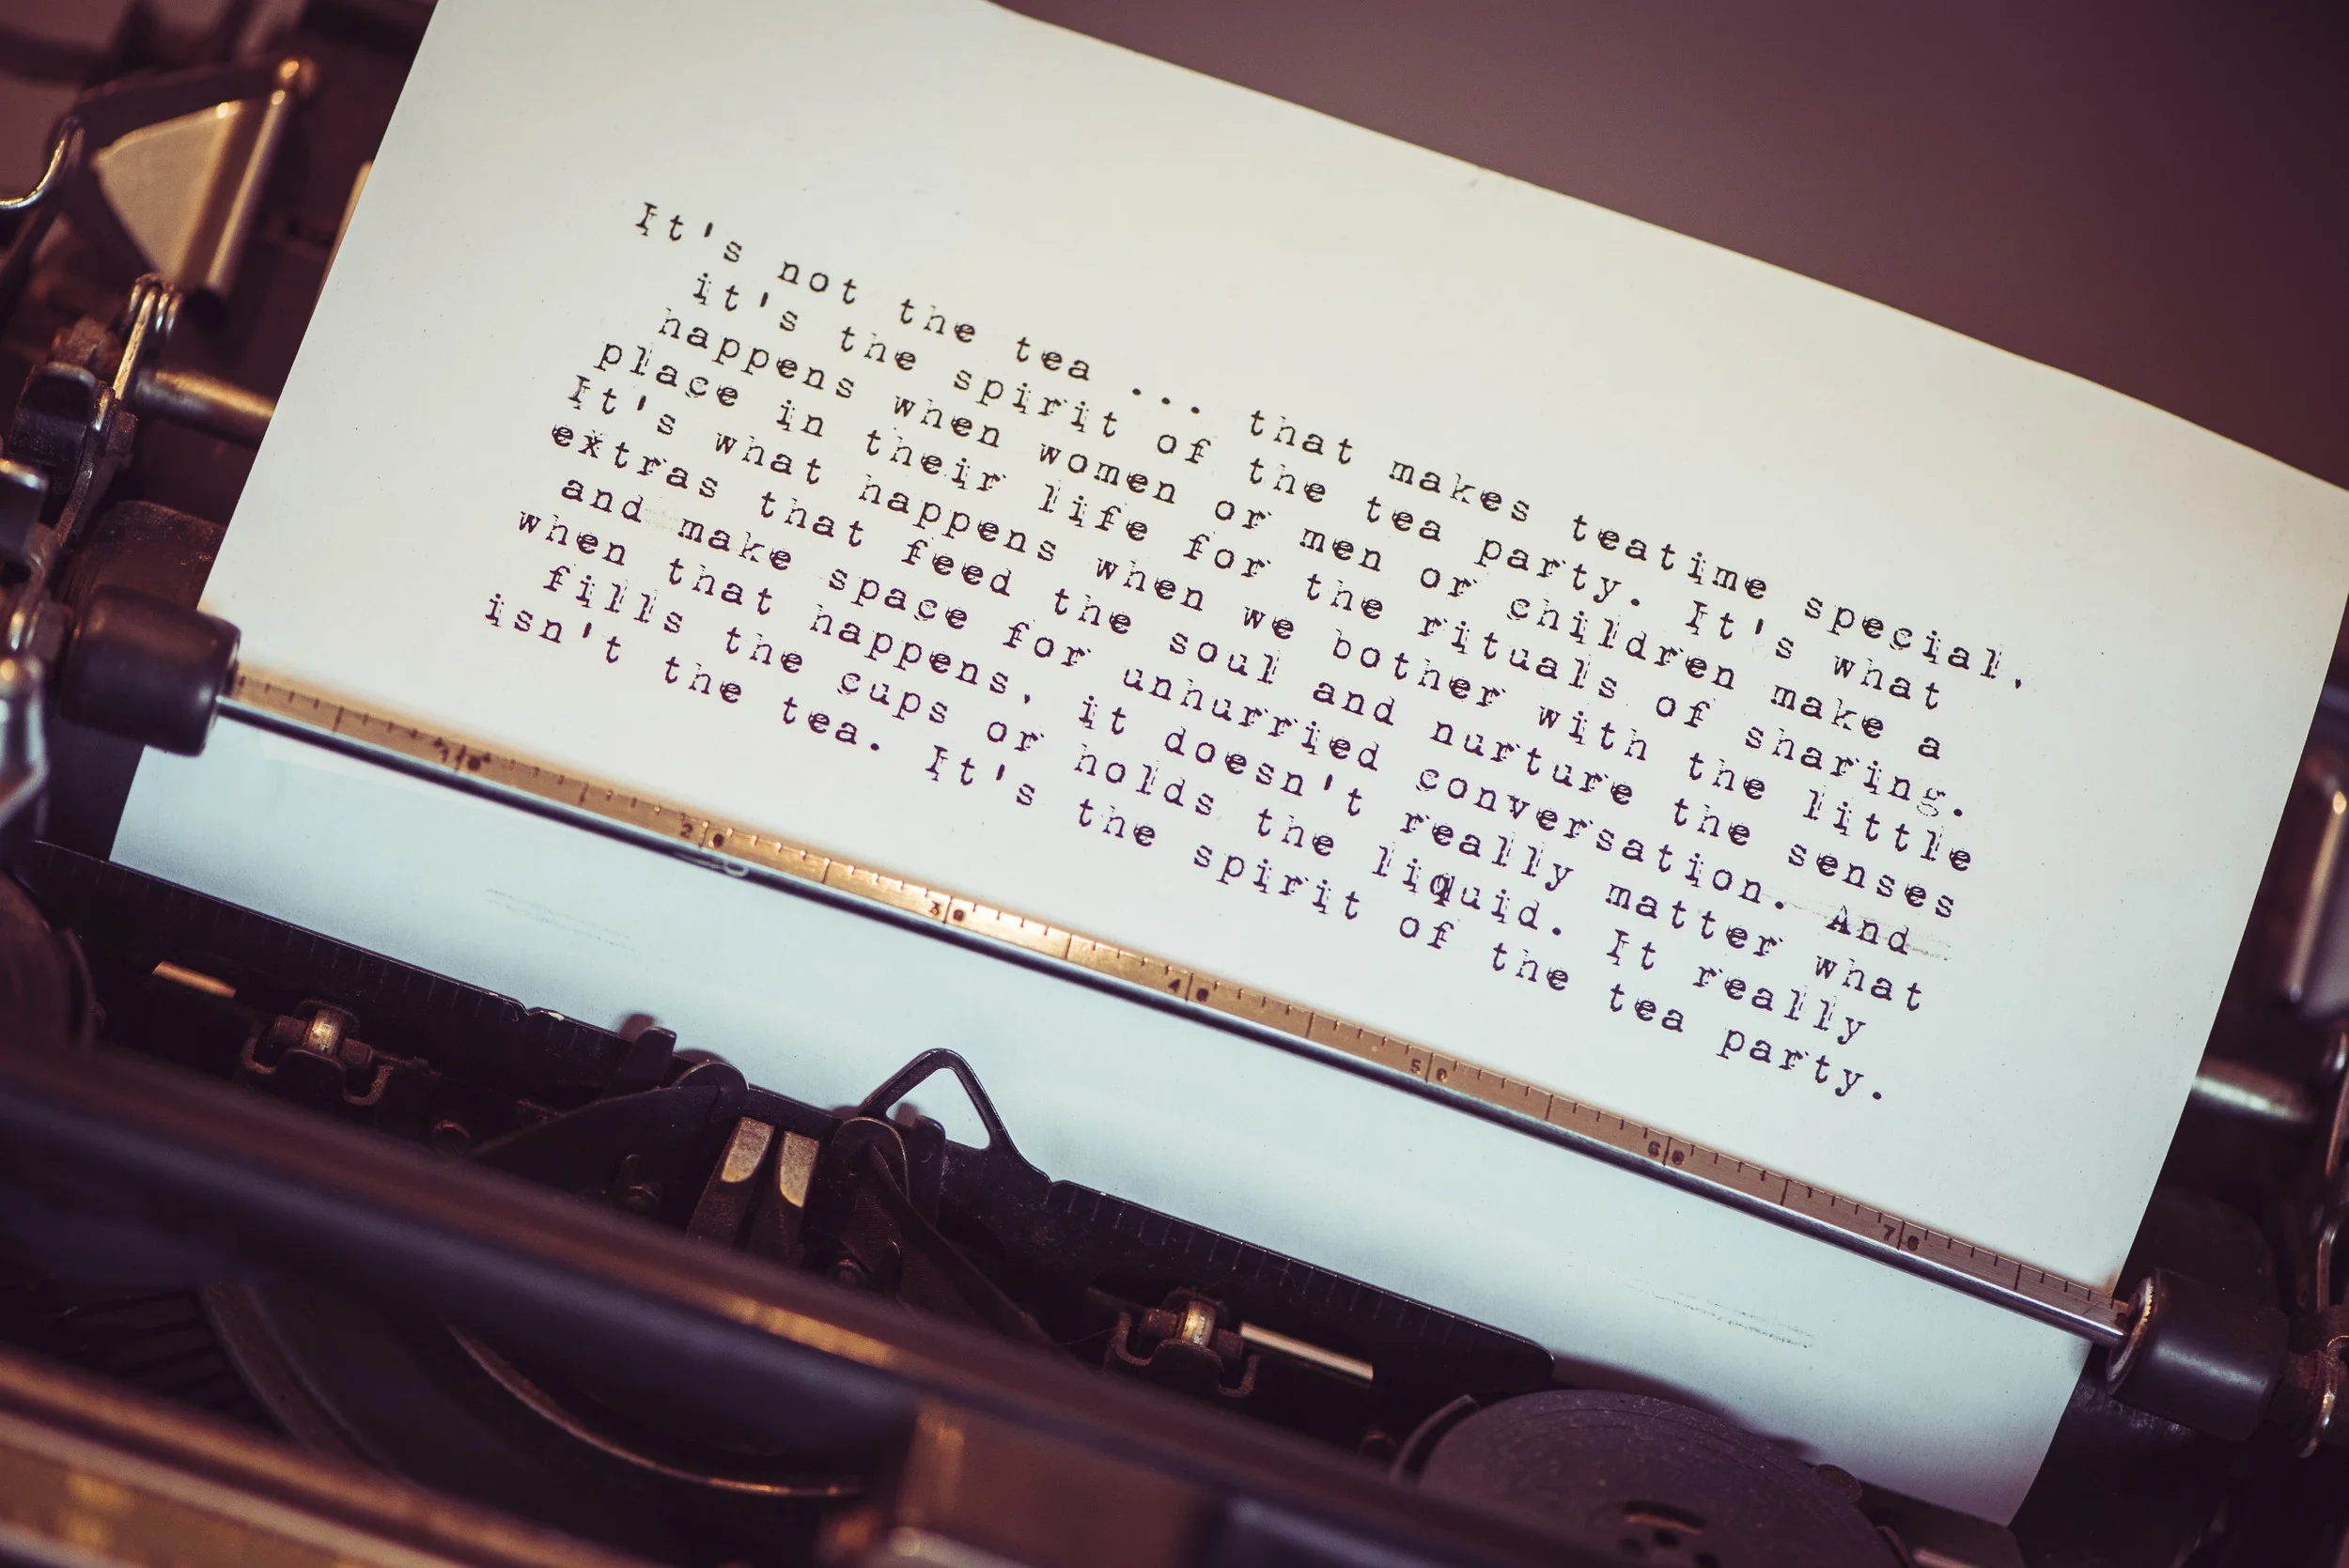 It's not the tea ... that makes teatime special,
it's the spirit of the tea party. It's what
happens when women or men or children make a
place in their life for the rituals of sharing.
It's what happens when we bother with the little
extras that feed the soul and nurture the senses
and make space for unhurried conversation. And
when that happens, it doesn't really matter what
fills the cups or holds the liquid. It really
isn't the tea. It's the spirit of the tea party.
10 20 30 40 50 60 70